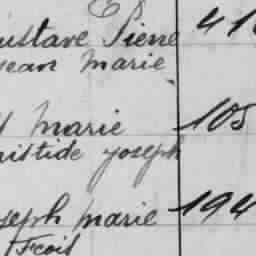 ustave Pierre 41
Jean Marie
Marie 105
ristide Joseph
seph Marie 194